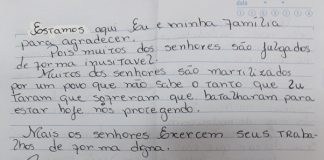 Estamos aqui Eu e minha família
para agradecer.
Pois muitos dos senhores são julgados
de forma inusitavel.
Muitos dos senhores são martilizados
por um povo que não sabe o tanto que lu
taram que sofreram que batalharam para
estar hoje nós protegendo.
Mais os senhores Exercem seus traba-
lhos de forma digna.